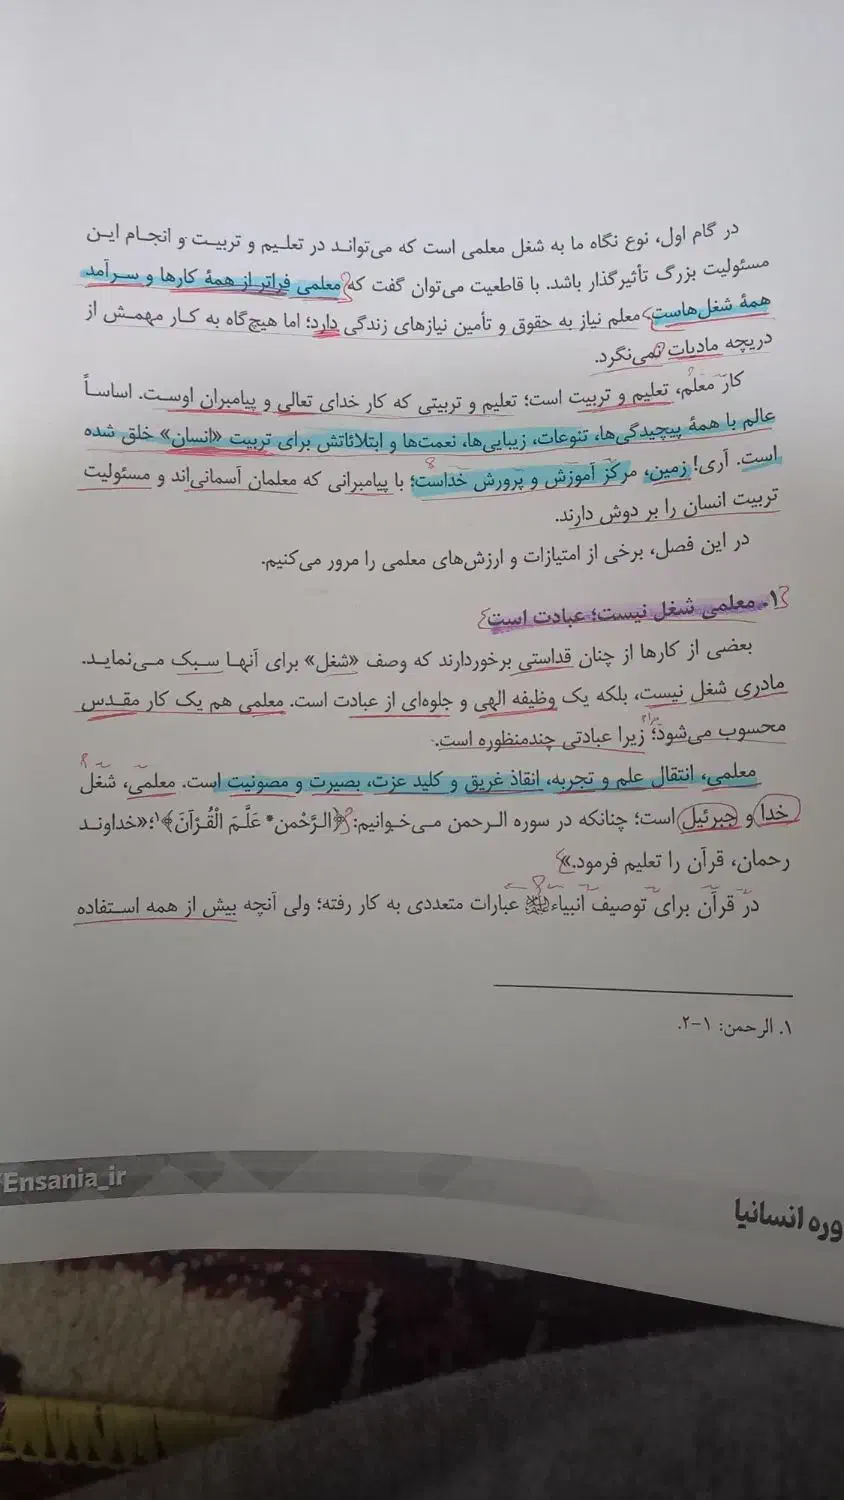 در گام اول، نوع نگاه ما به شغل معلمی است که می‌تواند در تعلیم و تربیت و انجام این
مسئولیت بزرگ تأثیرگذار باشد. با قاطعیت می‌توان گفت که معلمی فراتر از همهٔ کارها و سرآمد
همهٔ شغل‌هاست. معلم نیاز به حقوق و تأمین نیازهای زندگی دارد؛ اما هیچ‌گاه به کار مهمش از
دریچه مادیات نمی‌نگرد.
کار معلم، تعلیم و تربیت است؛ تعلیم و تربیتی که کار خدای تعالی و پیامبران اوست. اساساً
عالم با همهٔ پیچیدگی‌ها، تنوعات، زیبایی‌ها، نعمت‌ها و ابتلائاتش برای تربیت «انسان» خلق شده
است. آری! زمین، مرکز آموزش و پرورش خداست؛ با پیامبرانی که معلمان آسمانی‌اند و مسئولیت
تربیت انسان را بر دوش دارند.
در این فصل، برخی از امتیازات و ارزش‌های معلمی را مرور می‌کنیم.
۱. معلمی شغل نیست؛ عبادت است
بعضی از کارها از چنان قداستی برخوردارند که وصف «شغل» برای آنها سبک می‌نماید.
مادری شغل نیست، بلکه یک وظیفه الهی و جلوه‌ای از عبادت است. معلمی هم یک کار مقدس
محسوب می‌شود؛ زیرا عبادتی چندمنظوره است.
معلمی، انتقال علم و تجربه، انقاذ غریق و کلید عزت، بصیرت و مصونیت است. معلمی، شغل
خدا و جبرئیل است؛ چنانکه در سوره الرحمن می‌خوانیم: ﴿الرَّحْمن* عَلَّمَ الْقُرْآنَ﴾۱؛ «خداوند
رحمان، قرآن را تعلیم فرمود.»
در قرآن برای توصیف انبیاء عبارات متعددی به کار رفته؛ ولی آنچه بیش از همه استفاده
۱. الرحمن: ۱-۲.
Ensania_ir
وره انسانیا